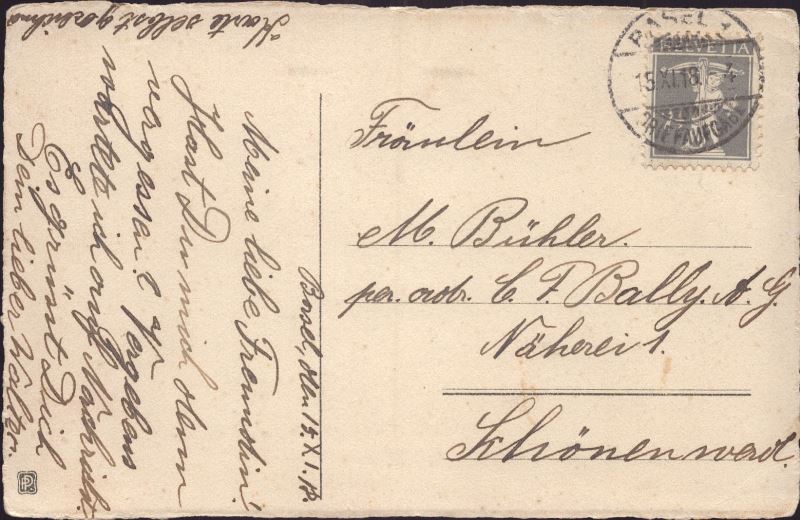 Basel, den 15. XI. 18.
Meine liebe Freundin!
Hast Du mich denn
vergessen? Vergebens
wartete ich auf Nachricht.
Es grüsst Dich
Dein lieber
Karte selbst
Fräulein
M. Bühler.
per. adr. C. F. Bally. A. G.
Näherei 1.
Schönenwerd.
BASEL 1
15.XI.18
BRIEFAUFGABE
HELVETIA